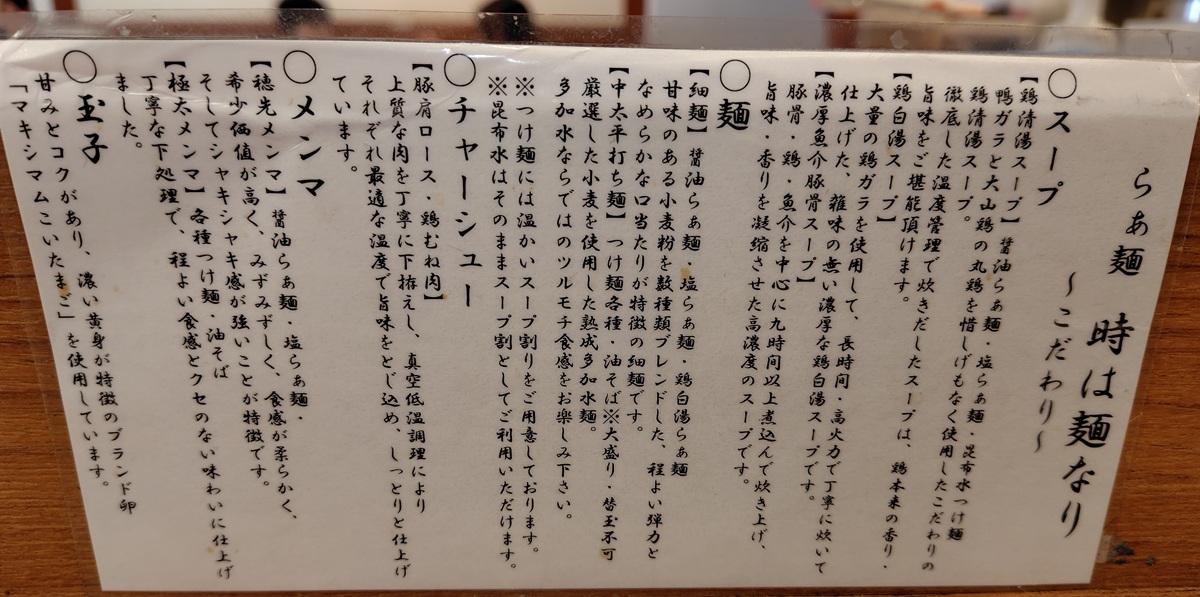 らぁ麺 時は麺なり
～こだわり～
○スープ
【鶏清湯スープ】醤油らぁ麺・塩らぁ麺・昆布水つけ麺
鴨ガラと大山鶏の丸鶏を惜しげもなく使用したこだわりの
鶏清湯スープ。
徹底した温度管理で炊きだしたスープは、鶏本来の香り・
旨味をご堪能頂けます。
【鶏白湯スープ】
大量の鶏ガラを使用して、長時間・高火力で丁寧に炊いて
仕上げた、雑味の無い濃厚な鶏白湯スープです。
【濃厚魚介豚骨スープ】
豚骨・鶏・魚介を中心に九時間以上煮込んで炊き上げ、
旨味・香りを凝縮させた高濃度のスープです。
○麺
【細麺】醤油らぁ麺・塩らぁ麺・鶏白湯らぁ麺
甘味のある小麦粉を数種類ブレンドした、程よい弾力と
なめらかな口当たりが特徴の細麺です。
【中太平打ち麺】つけ麺各種・油そば※大盛り・替玉不可
厳選した小麦を使用した熟成多加水麺。
多加水ならではのツルモチ食感をお楽しみ下さい。
※つけ麺には温かいスープ割りをご用意しております。
※昆布水はそのままスープ割としてご利用いただけます。
○チャーシュー
【豚肩ロース・鶏むね肉】
上質な肉を丁寧に下拵えし、真空低温調理により
それぞれ最適な温度で旨味をとじ込め、しっとりと仕上げ
ています。
○メンマ
【穂先メンマ】醤油らぁ麺・塩らぁ麺・
希少価値が高く、みずみずしく、食感が柔らかく、
そしてシャキシャキ感が強いことが特徴です。
【極太メンマ】各種つけ麺・油そば
丁寧な下処理で、程よい食感とクセのない味わいに仕上げ
ました。
○玉子
甘みとコクがあり、濃い黄身が特徴のブランド卵
「マキシマムこいたまご」を使用しています。